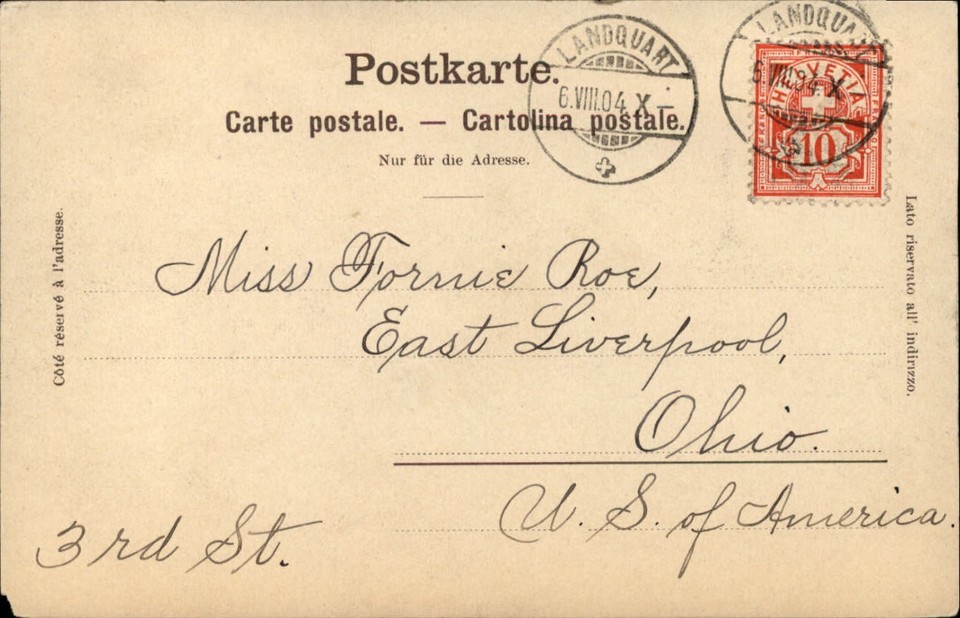 Postkarte.
Carte postale. — Cartolina postale.
Nur für die Adresse.
LANDQUART
6.VIII.04. X –
LANDQUART
6.VIII.04. X
HELVETIA
10
Côté réservé à l'adresse.
Lato riservato all' indirizzo.
Miss Fornie Roe,
East Liverpool,
Ohio.
U. S. of America.
3rd St.